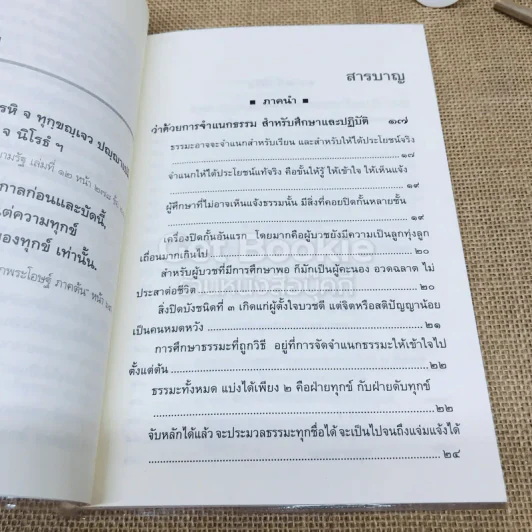 รหิ จ ทุกฺขญฺเจว ปญฺญาเปมิ
จ นิโรธํ ฯ
กาลก่อนและบัดนี้,
แต่ความทุกข์
ของทุกข์ เท่านั้น.
สารบาญ
■ ภาคนำ ■
ว่าด้วยการจำแนกธรรม สำหรับศึกษาและปฏิบัติ ๑๗
ธรรมะอาจจะจำแนกสำหรับเรียน และสำหรับให้ได้ประโยชน์จริง
๑๗
จำแนกให้ได้ประโยชน์แท้จริง คือขั้นให้รู้ ให้เข้าใจ ให้เห็นแจ้ง
๑๙
ผู้ศึกษาที่ไม่อาจเห็นแจ้งธรรมนั้น มีสิ่งที่คอยปิดกั้นหลายชั้น
๑๙
เครื่องปิดกั้นอันแรก โดยมากคือผู้บวชยังมีความเป็นลูกทุ่งลูก
เถื่อนมากเกินไป ๒๐
สำหรับผู้บวชที่มีการศึกษาพอ ก็มักเป็นผู้คะนอง อวดฉลาด ไม่
ประสาต่อชีวิต ๒๐
สิ่งปิดบังชนิดที่ ๓ เกิดแก่ผู้ตั้งใจบวชดี แต่จิตหรือสติปัญญาน้อย
เป็นคนหมดหวัง ๒๑
การศึกษาธรรมะที่ถูกวิธี อยู่ที่การจัดจำแนกธรรมะให้เข้าใจไป
ตั้งแต่ต้น ๒๒
ธรรมะทั้งหมด แบ่งได้เพียง ๒ คือฝ่ายทุกข์ กับฝ่ายดับทุกข์
๒๒
จับหลักได้แล้ว จะประมวลธรรมะทุกชื่อได้ จะเป็นไปจนถึงแจ่มแจ้งได้
๒๔